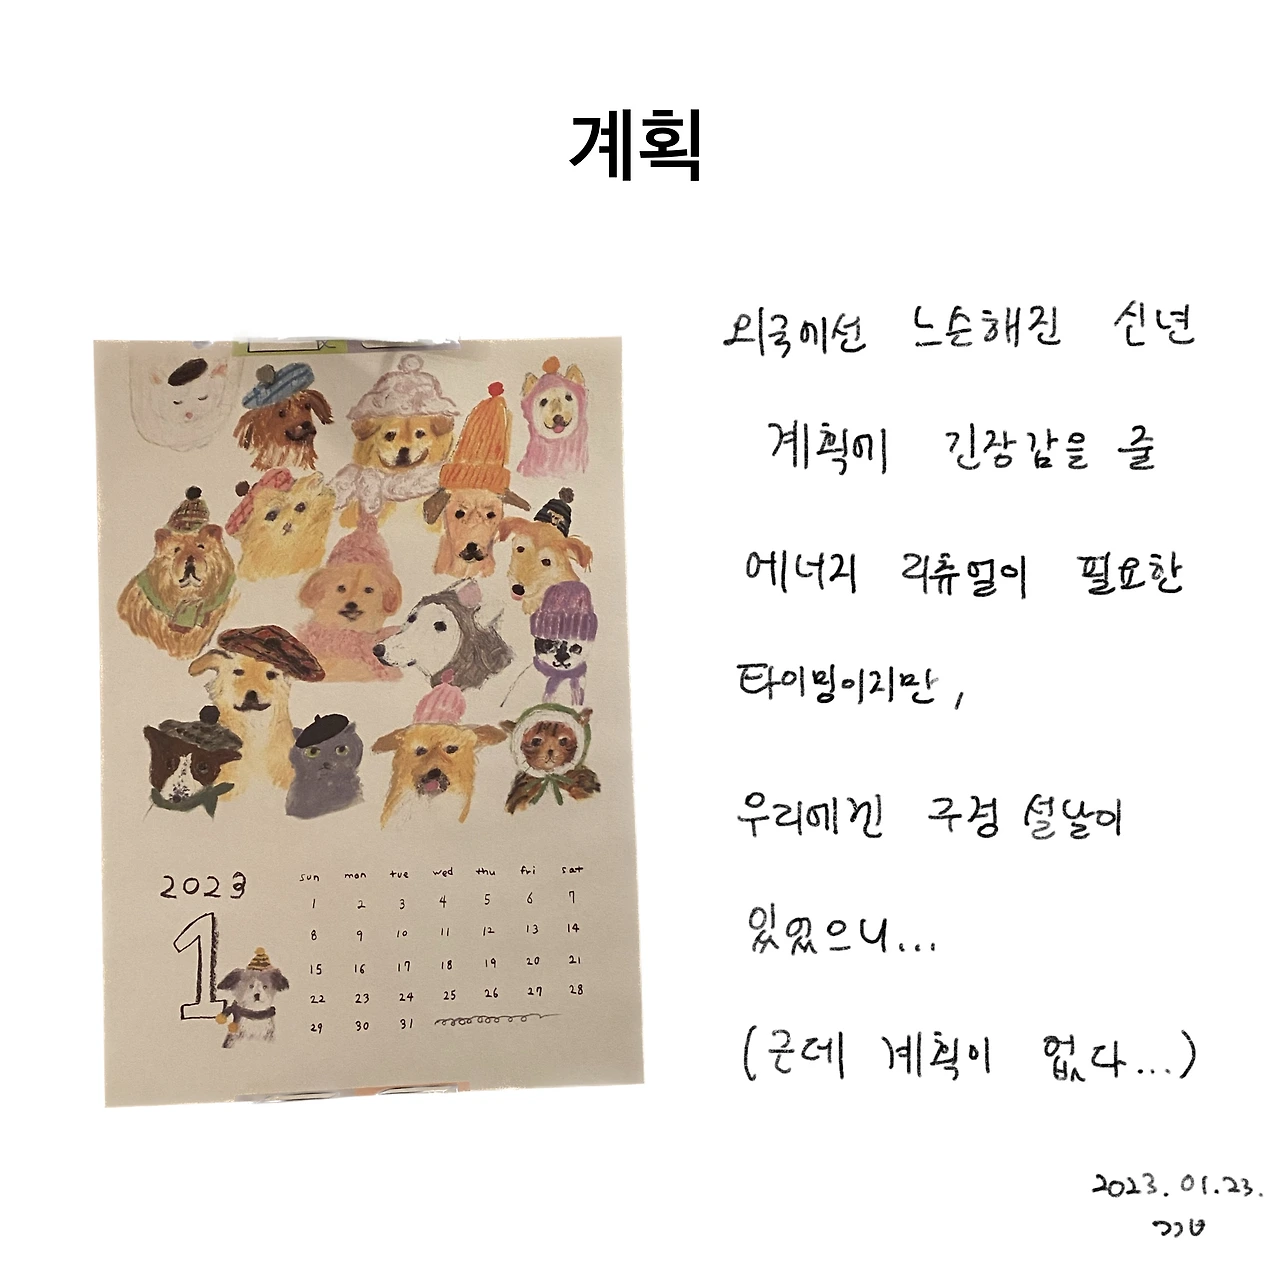 계획
외국에선 느슨해진 신년
계획에 긴장감을 줄
에너지 리츄얼이 필요한
타이밍이지만,
우리에겐 구정 설날이
있었으니...
(근데 계획이 없다...)
2023
1
sun mon tue wed thu fri sat
1 2 3 4 5 6 7
8 9 10 11 12 13 14
15 16 17 18 19 20 21
22 23 24 25 26 27 28
29 30 31
2023.01.23.